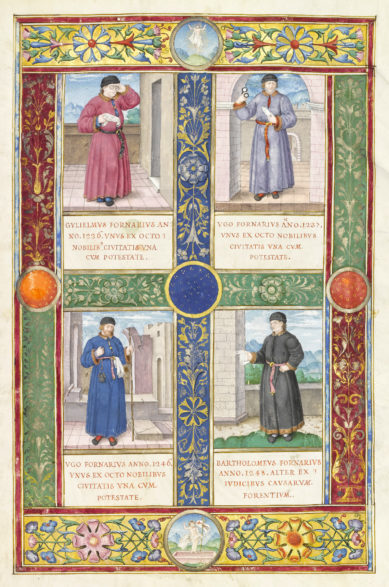 GULIELMUS FORNARIUS AN
NO. 1236. VNUS EX OCTO
NOBILIB⁹ CIVITATIS UNA
CUM POTESTATE.
UGO FORNARIUS AÑO. 1237.
VNUS EX OCTO NOBILIBUS
CIVITATIS UNA CVM
POTESTATE.
VGO FORNARIUS ANNO. 1246.
VNUS EX OCTO NOBILIBUS
CIVITATIS VNA CVM
POTESTATE.
BARTHOLOMEUS FORNARIUS
ANNO. 1248. ALTER EX
IUDICIBUS CAUSARUM
FORENTIUM.